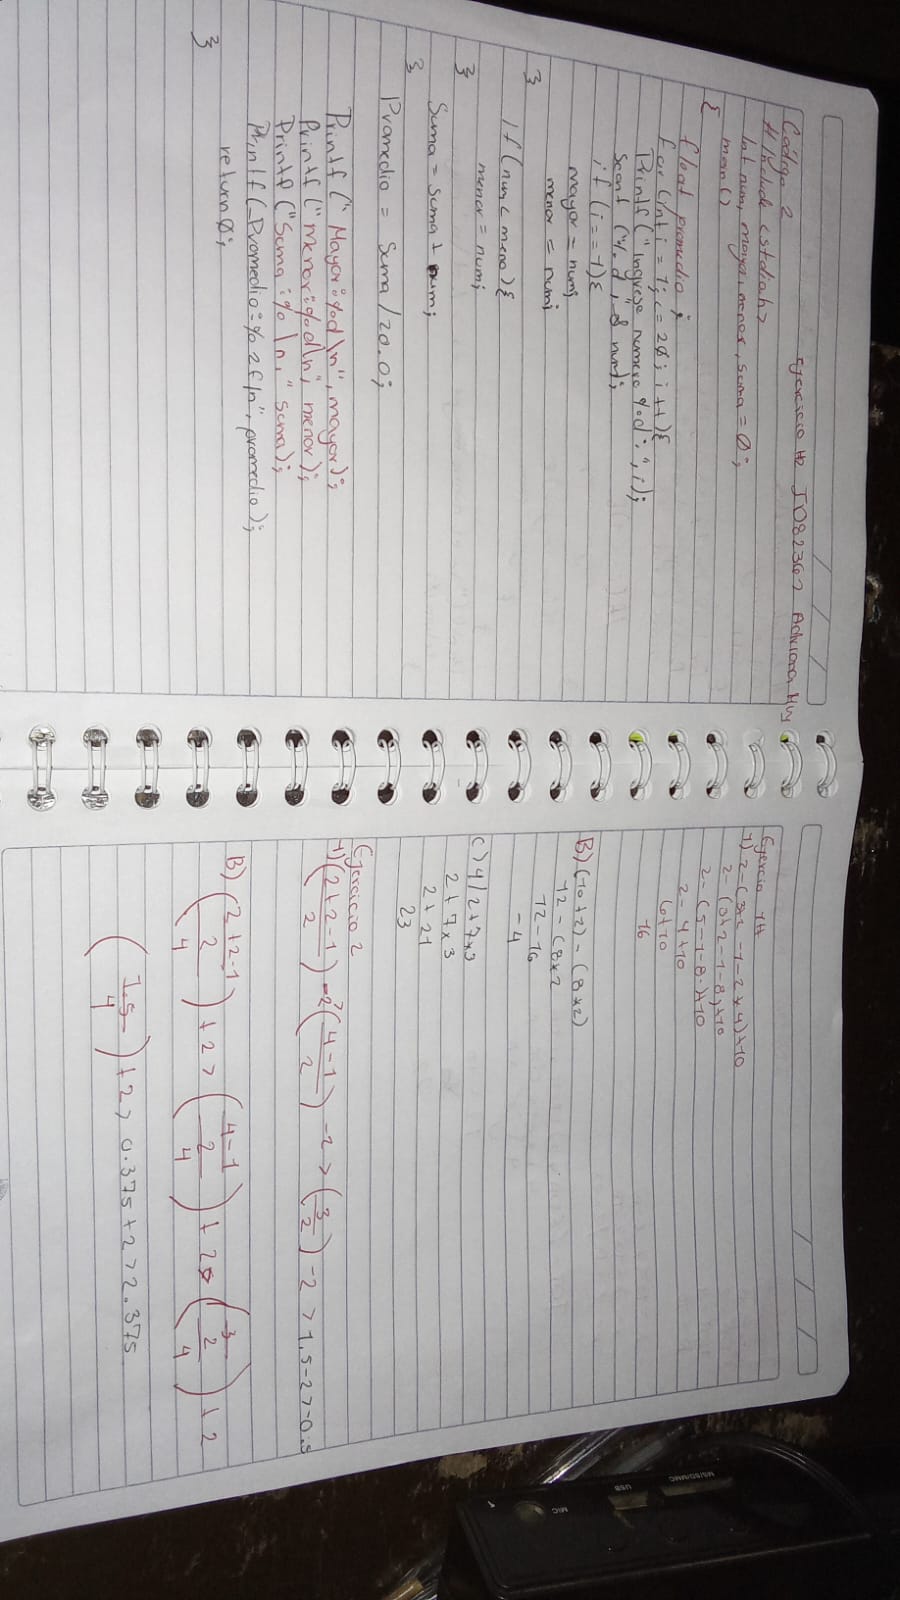 Ejercicio H2 JD82367 Adriana
Código 2
#Include <stdio.h>
Int num, mayor, menor, suma = 0;
main()
{
float promedio;
For (int i = 1; i = 20; i++){
Printf("Ingrese numero %d: ", i);
Scanf ("%d", & num);
if (i == 1){
mayor = num;
menor = num;
}
If (num < meno){
menor = num;
}
Suma = Suma + num;
}
Promedio = Suma / 20.0;
Printf ("Mayor: %d\n", mayor);
Printf ("menor: %d\n", menor);
Printf ("Suma: % \n, " suma);
Printf (-Promedio= %2f\n", promedio);
return 0;
}
Ejercicio 1H
1) 2-(3+2-1-2*4)+10
2-(3+2-1-8)+10
2-(5-1-8)+10
2-4+10
6+10
16
B) (10+2) - (8*2)
12 - (8*2
12-16
-4
C) 4/2+7*3
2+7*3
2+21
23
Ejercicio 2
1) (2+2-1 / 2) -2 > (4-1 / 2) -2 > (3/2) -2 > 1,5-2 > -0.5
B) (2+2-1 / 2 / 4) +2 > (4-1 / 2 / 4) +2 > (3 / 2 / 4) +2
(1.5 / 4) +2 > 0.375+2 > 2.375
MS/SD/MMC
USB
MIC